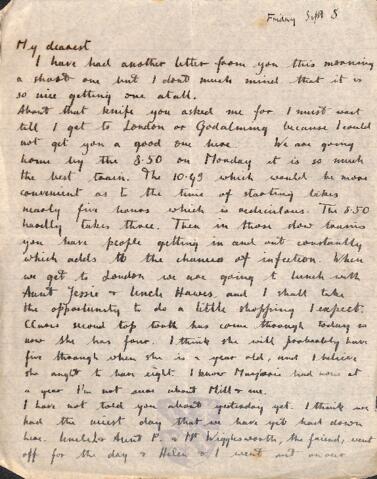 Friday Sept 5
My dearest
I have had another letter from you this morning
a short one but I dont much mind that it is
so nice getting one at all.
About that knife you asked me for I must wait
till I get to London or Godalming because I could
not get you a good one here. We are going
home by the 8.50 on Monday it is so much
the best train. The 10.43 which would be more
convenient as to the time of starting takes
nearly five hours which is rediculous. The 8.50
hardly takes three. Then in those slow trains
you have people getting in and out constantly
which adds to the chances of infection. When
we get to London we are going to lunch with
Aunt Jessie & Uncle Hawes and I shall take
the opportunity to do a little shopping I expect.
Clares second top tooth has come through today so
now she has four. I think she will probably have
five through when she is a year old, and I believe
she ought to have eight. I know Marjorie had none at
a year I'm not sure about Mill & me.
I have not told you about yesterday yet. I think we
had the nicest day that we have yet had down
here. Uncle & Aunt P. & Mr Wigglesworth, the friend, went
off for the day & Helen & I went out on our